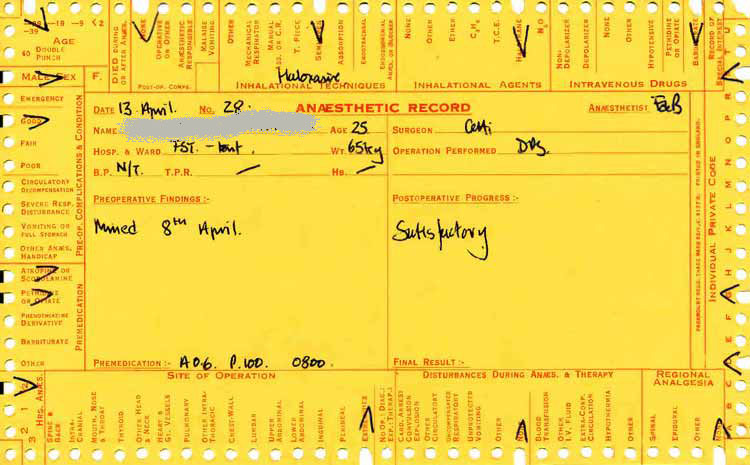 -39
-18 -9 <2
AGE
40 DOUBLE PUNCH
MALE SEX F.
DIED DURING OR AFTER ANÆS.
NONE
OPERATIVE OR OTHER
ANÆSTHETIC RESPONSIBLE
MALAISE VOMITING
OTHER
MECHANICAL RESPIRATOR
MANUAL
T. PIECE
ABSORPTION
ENDOTRACHEAL
NONE
OTHER
ETHER
C₃H₆
T.C.E.
N₂O
NON-DEPOLARIZER
DEPOLARIZER
NONE
OTHER
HYPOTENSIVE
PETHIDINE OR OPIATE
RECORD OF SPECIAL INTEREST
POST-OP. COMPS.
Haloxaire
INHALATIONAL TECHNIQUES
INHALATIONAL AGENTS
INTRAVENOUS DRUGS
EMERGENCY
GOOD
FAIR
POOR
CIRCULATORY DECOMPENSATION
SEVERE RESP. DISTURBANCE
VOMITING OR FULL STOMACH
OTHER ANÆS. HANDICAP
PRE-OP. COMPLICATIONS & CONDITION
ATROPINE OR SCOPOLAMINE
PETHIDINE OR OPIATE
PHENOTHIAZINE DERIVATIVE
BARBITURATE
OTHER
PREMEDICATION
DATE 13. April. No. 28. ANÆSTHETIC RECORD ANÆSTHETIST:
NAME AGE 25 SURGEON Cetti
HOSP. & WARD FST. - tent. WT. 65kg OPERATION PERFORMED DPS.
B.P. N/T. T.P.R. / HB. /
PREOPERATIVE FINDINGS :- POSTOPERATIVE PROGRESS :-
Mined 8th April. Satisfactory
PREMEDICATION :- A 0.6. P. 100. 0800. FINAL RESULT :-
INDIVIDUAL PRIVATE CODE
SITE OF OPERATION
DISTURBANCES DURING ANÆS. & THERAPY
REGIONAL ANALGESIA
3 2 1
HRS. ANÆS.
SPINE & BACK
INTRA-CRANIAL
MOUTH, NOSE & THROAT
THYROID
OTHER HEAD & NECK
HEART & GT. VESSELS
PULMONARY
OTHER INTRA-THORACIC
CHEST-WALL
LUMBAR
UPPER ABDOMINAL
LOWER ABDOMINAL
INGUINAL
PERINEAL
EXTREMITIES
NO OP. (DIAG.: EXP.: THERAP.)
CARD. ARREST CONVULSION EXPLOSION
OTHER CIRCULATORY
UNCOMPENSATED RESPIRATORY
UNPROTECTED VOMITING
OTHER
BLOOD TRANSFUSION
OTHER I.V. FLUID
EXTRA-CORP. CIRCULATION
HYPOTHERMIA
OTHER
SPINAL
EPIDURAL
OTHER